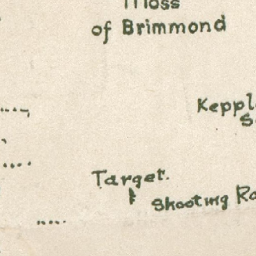 Moss
of Brimmond
Keppl
S
Target.
Shooting Ra